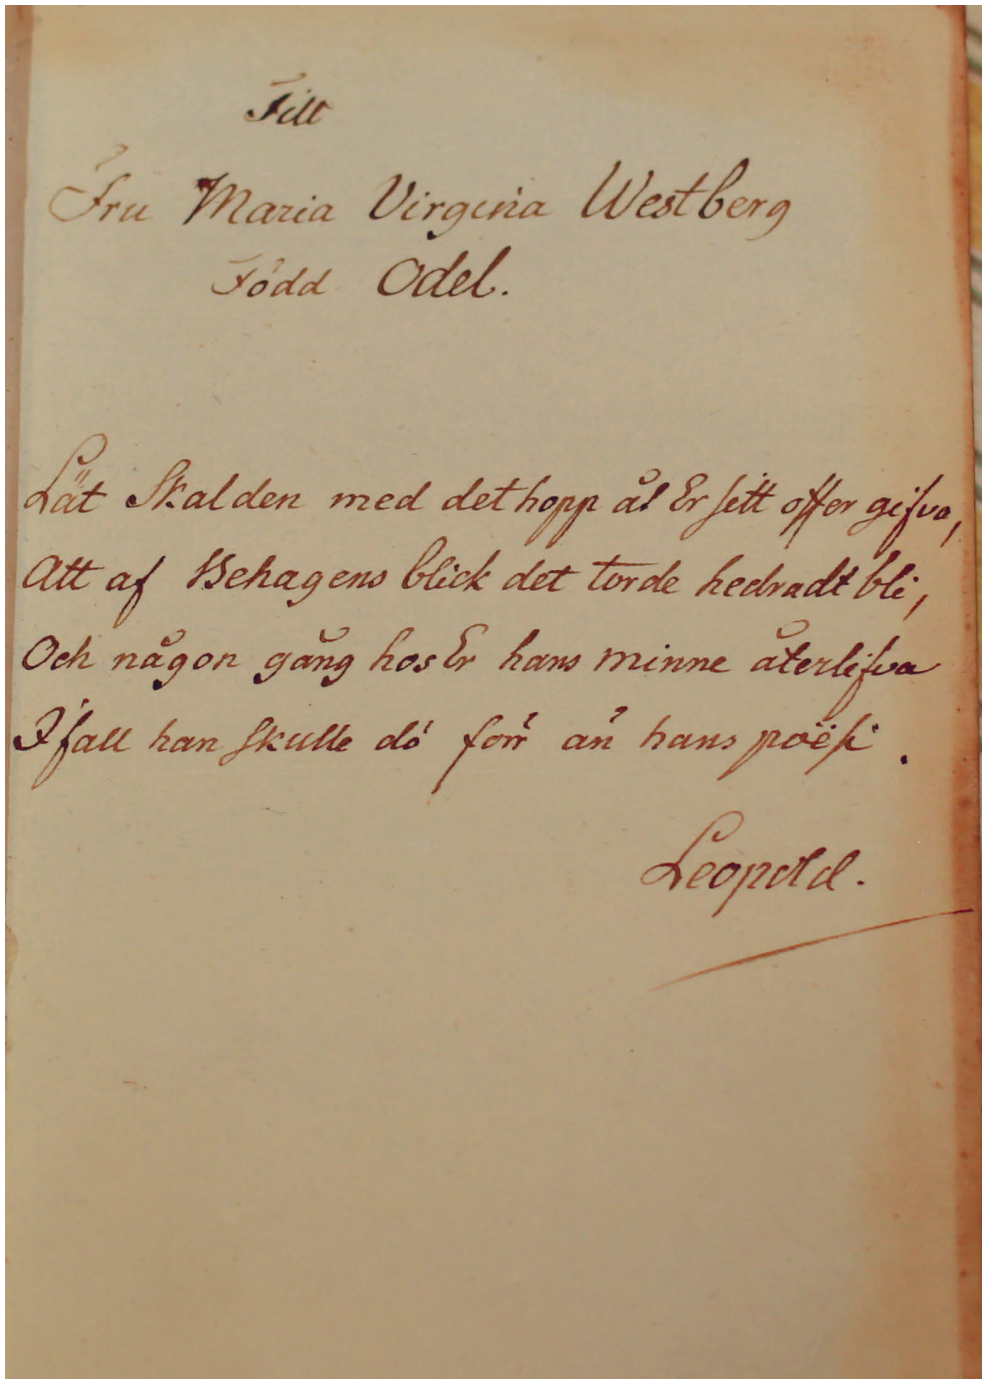 Till
Fru Maria Virginia Westberg
Född Odel.
Låt Skalden med det hopp åt Er sitt offer gifva,
Att af Behagens blick det torde hedradt bli,
Och någon gång hos Er hans minne återlifva
Ifall han skulle dö förr än hans poësi.
Leopold.